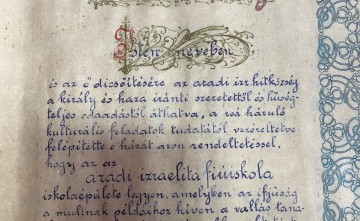 Isten nevében
és az ő dicsőítésére az aradi izr. hitközség
a király és haza iránti szeretettől és hűség-
teljes odaadástól áthatva, a reá háruló
kulturális feladatok tudatától vezéreltetve
felépítette e házat azon rendeltetéssel,
hogy az az
aradi izraelita fiúiskola
iskolaépülete legyen, amelyben az ifjúság
a multnak példáihoz híven a vallás tana-